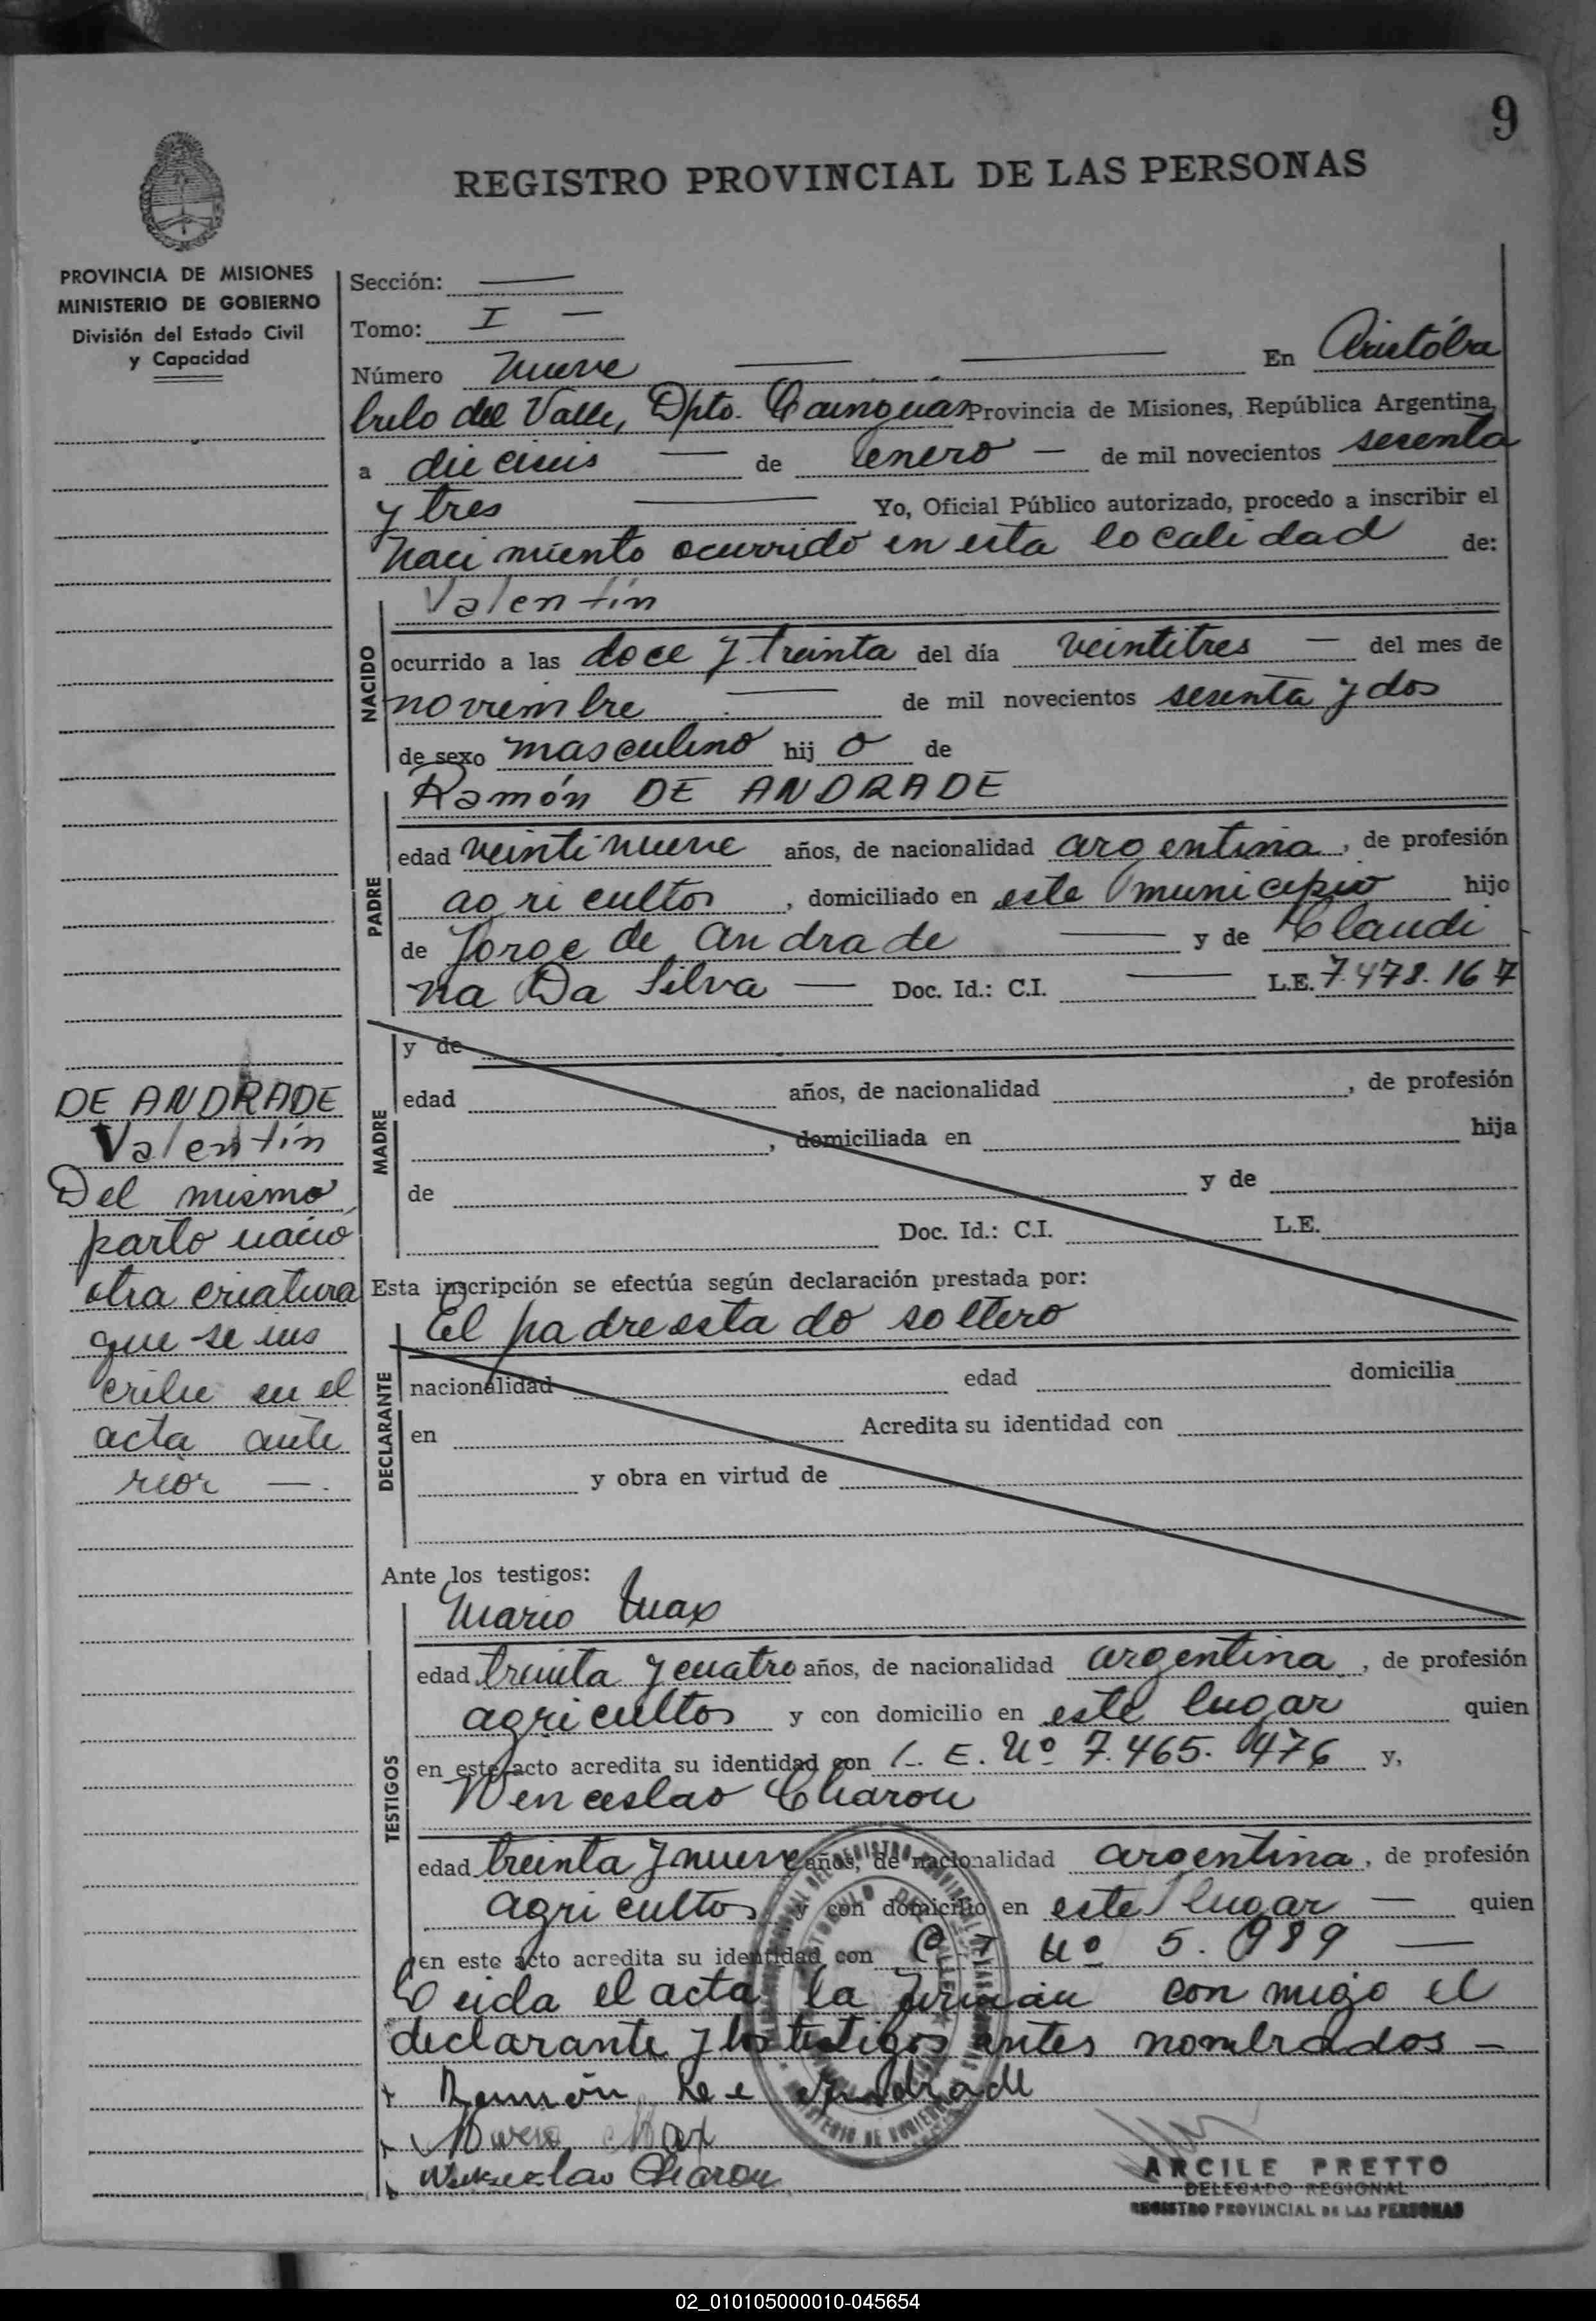 9
REGISTRO PROVINCIAL DE LAS PERSONAS
PROVINCIA DE MISIONES
MINISTERIO DE GOBIERNO
División del Estado Civil
y Capacidad
Sección: —
Tomo: I —
Número Nueve — — En Aristóbu
bulo del Valle, Dpto. Cainguas Provincia de Misiones, República Argentina,
a dieciseis — de enero — de mil novecientos sesenta
y tres — Yo, Oficial Público autorizado, procedo a inscribir el
nacimiento ocurrido en esta localidad de:
NACIDO
Valentín
ocurrido a las doce y treinta del día veintitres — del mes de
noviembre — de mil novecientos sesenta y dos
de sexo masculino hij o de
PADRE
Ramón DE ANDRADE
edad veintinueve años, de nacionalidad argentina, de profesión
agricultor, domiciliado en este municipio hijo
de Jorge de Andrade — y de Claudi
na Da Silva — Doc. Id.: C.I. — L.E. 7.478.167
MADRE
y de
edad años, de nacionalidad , de profesión
, domiciliada en hija
de y de
Doc. Id.: C.I. L.E.
DE ANDRADE
Valentín
Del mismo
parto nació
otra criatura
que se ins
cribe en el
acta ante
rior —.
Esta inscripción se efectúa según declaración prestada por:
DECLARANTE
El padre estado soltero
nacionalidad edad domicilia
en Acredita su identidad con
y obra en virtud de
Ante los testigos:
TESTIGOS
Mario Max
edad treinta y cuatro años, de nacionalidad argentina, de profesión
agricultor y con domicilio en este lugar quien
en este acto acredita su identidad con L. E. Nº 7.465.476 y,
Wenceslao Charou
edad treinta y nueve años, de nacionalidad argentina, de profesión
agricultor y con domicilio en este lugar — quien
en este acto acredita su identidad con C. I. Nº 5.989 —
Leida el acta la firman conmigo el
declarante y los testigos antes nombrados —
Ramón de Andrade
Mario Max
Wenceslao Charou
ARCILE PRETTO
DELEGADO REGIONAL
REGISTRO PROVINCIAL DE LAS PERSONAS
02_010105000010-045654